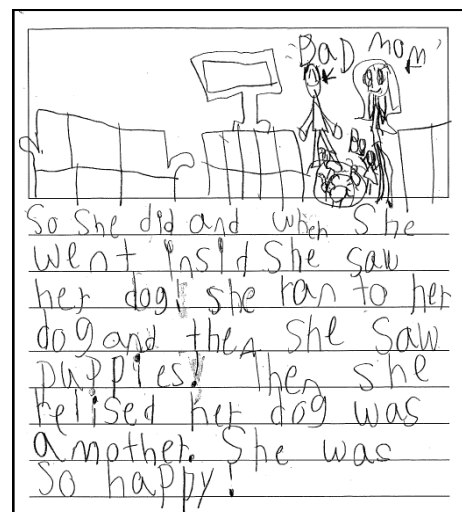 BAD MOM
So She did and when She
went insid She saw
her dog! she ran to her
dog and then she Saw
puppies! Then she
relised her dog was
a mother. She was
So happy!